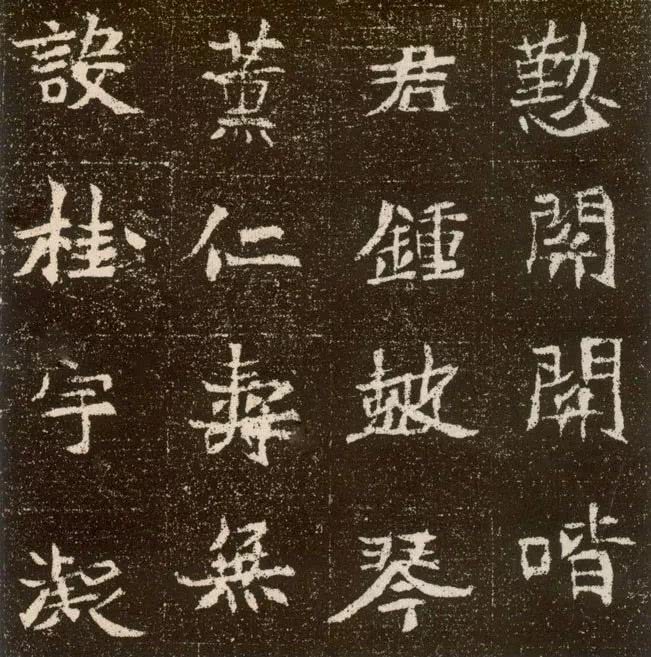 懃開開喈
君鍾皷琴
薰仁壽無
設桂宇凝